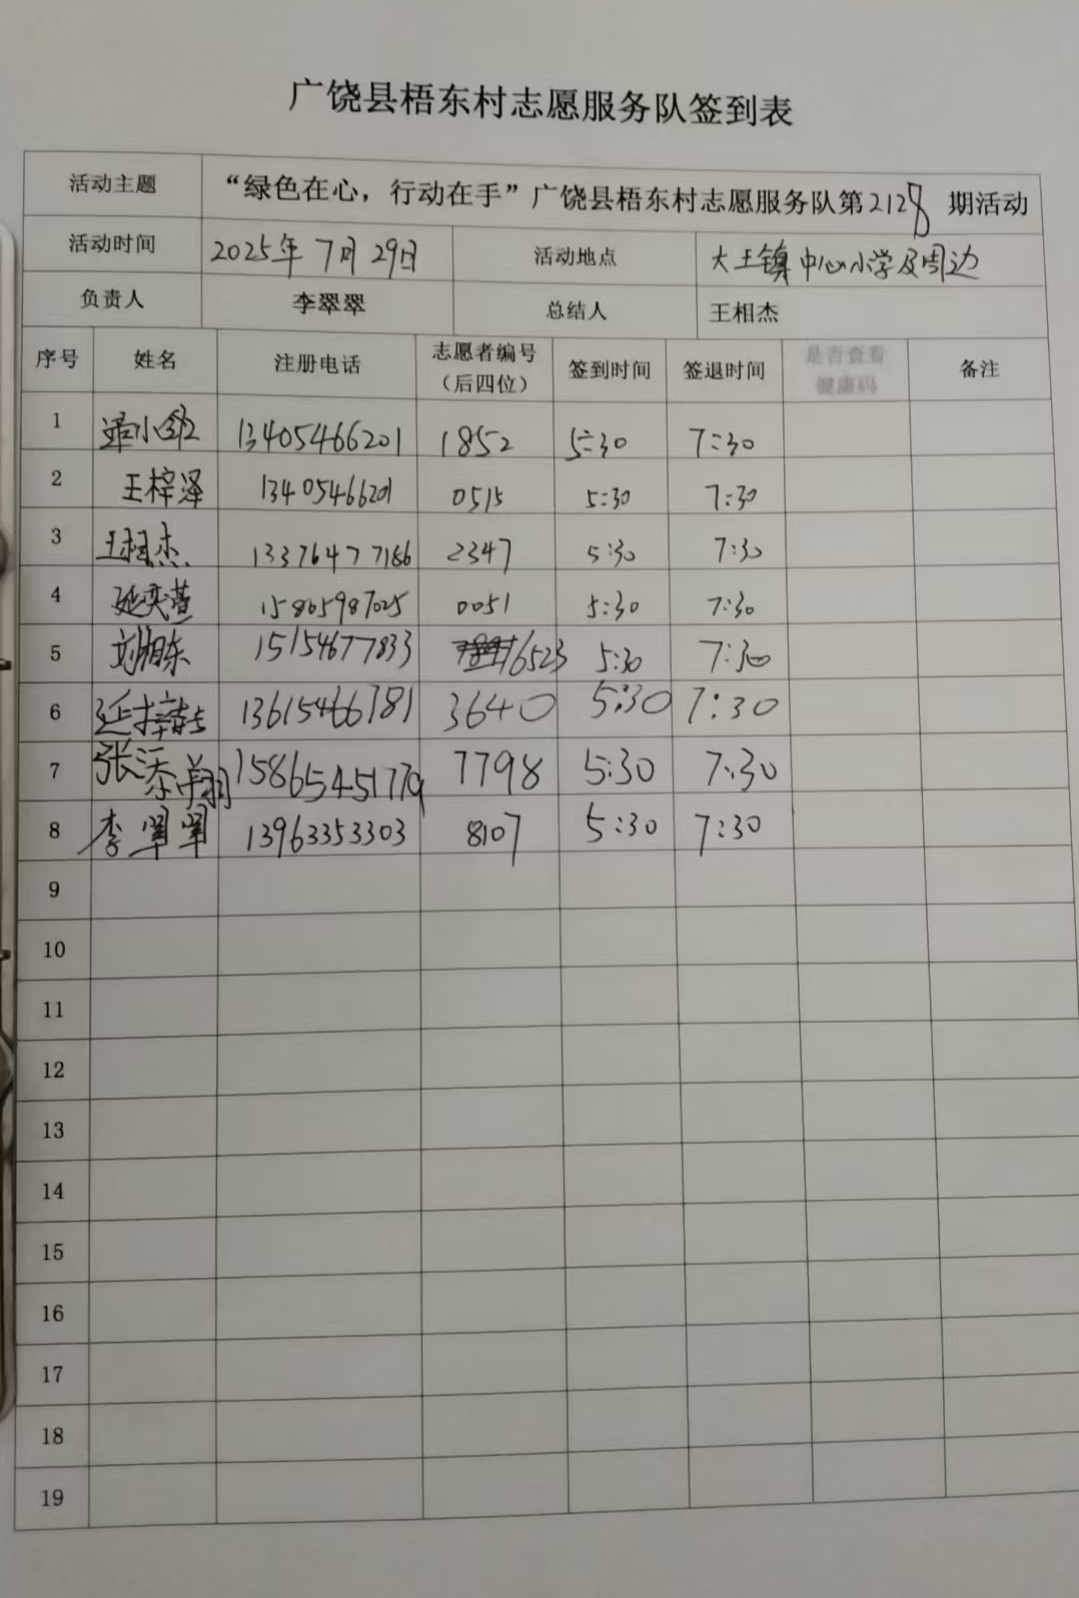 广饶县梧东村志愿服务队签到表
活动主题 “绿色在心，行动在手”广饶县梧东村志愿服务队第2128期活动
活动时间 2025年7月29日 活动地点 大王镇中心小学及周边
负责人 李翠翠 总结人 王相杰
序号 姓名 注册电话 志愿者编号（后四位） 签到时间 签退时间 是否查看健康码 备注
1 13405466201 1852 5:30 7:30
2 王梓泽 13405466201 0515 5:30 7:30
3 王相杰 13376477166 2347 5:30 7:30
4 延奕萱 15805987025 0051 5:30 7:30
5 刘相东 15154677833 6523 5:30 7:30
6 13615466781 3640 5:30 7:30
7 张添翔 15865451779 7798 5:30 7:30
8 李翠翠 13963353303 8107 5:30 7:30
9
10
11
12
13
14
15
16
17
18
19